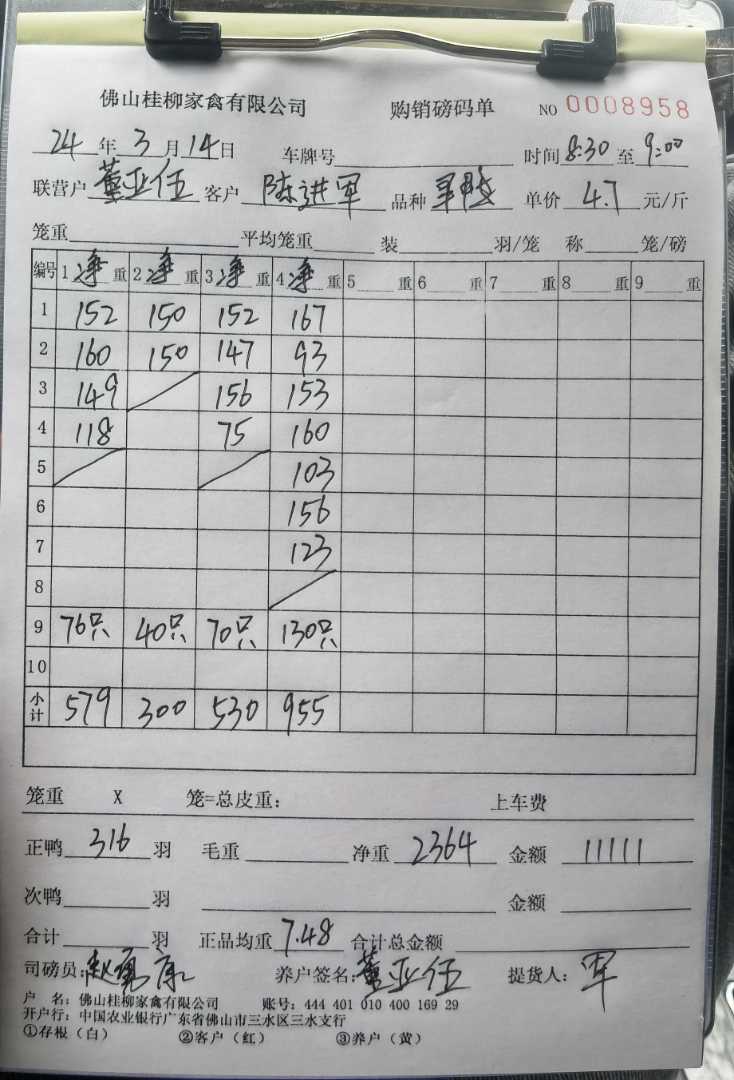 佛山桂柳家禽有限公司 购销磅码单 NO 0008958
24年3月14日 车牌号 时间8:30至9:00
联营户 董业伍 客户 陈进军 品种 单价 4.7 元/斤
笼重 平均笼重 装 羽/笼 称 笼/磅
编号 1净重 2净重 3净重 4净重 5 重 6 重 7 重 8 重 9 重
1 152 150 152 167
2 160 150 147 93
3 149 156 153
4 118 75 160
5 103
6 156
7 123
8
9 76只 40只 70只 130只
10
小计 579 300 530 955
笼重 X 笼=总皮重: 上车费
正鸭 316 羽 毛重 净重 2364 金额 11111
次鸭 羽 金额
合计 羽 正品均重 7.48 合计总金额
司磅员: 赵勇康 养户签名: 董业伍 提货人: 军
户 名: 佛山桂柳家禽有限公司 账号: 444 401 010 400 169 29
开户行: 中国农业银行广东省佛山市三水区三水支行
①存根（白） ②客户（红） ③养户（黄）